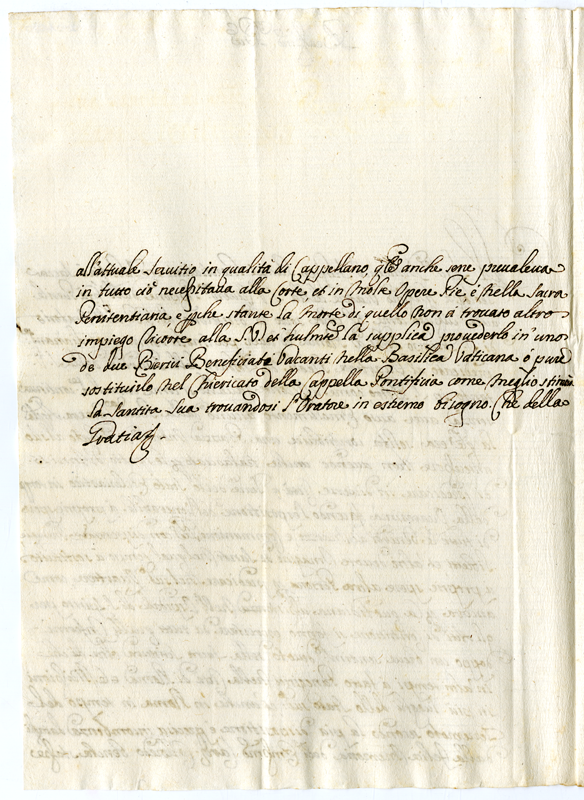 all'attuale Servitio in qualità di Cappellano, anche sene prevaleva
in tutto ciò necessitava alla Corte, et in Molte Opere Pie, è nella Sacra
Penitentiaria e stante la Morte di quello non à trovato altro
impiego Ricorre alla S.V. et la supplica provederlo in uno
de due Beneficiati Vacanti nella Basilica Vaticana ò pure
sostituirlo nel Chiericato della Cappella Pontificia come meglio stimarà
la Santita Sua trovandosi l'Oratore in estremo bisogno. Che della
Gratia